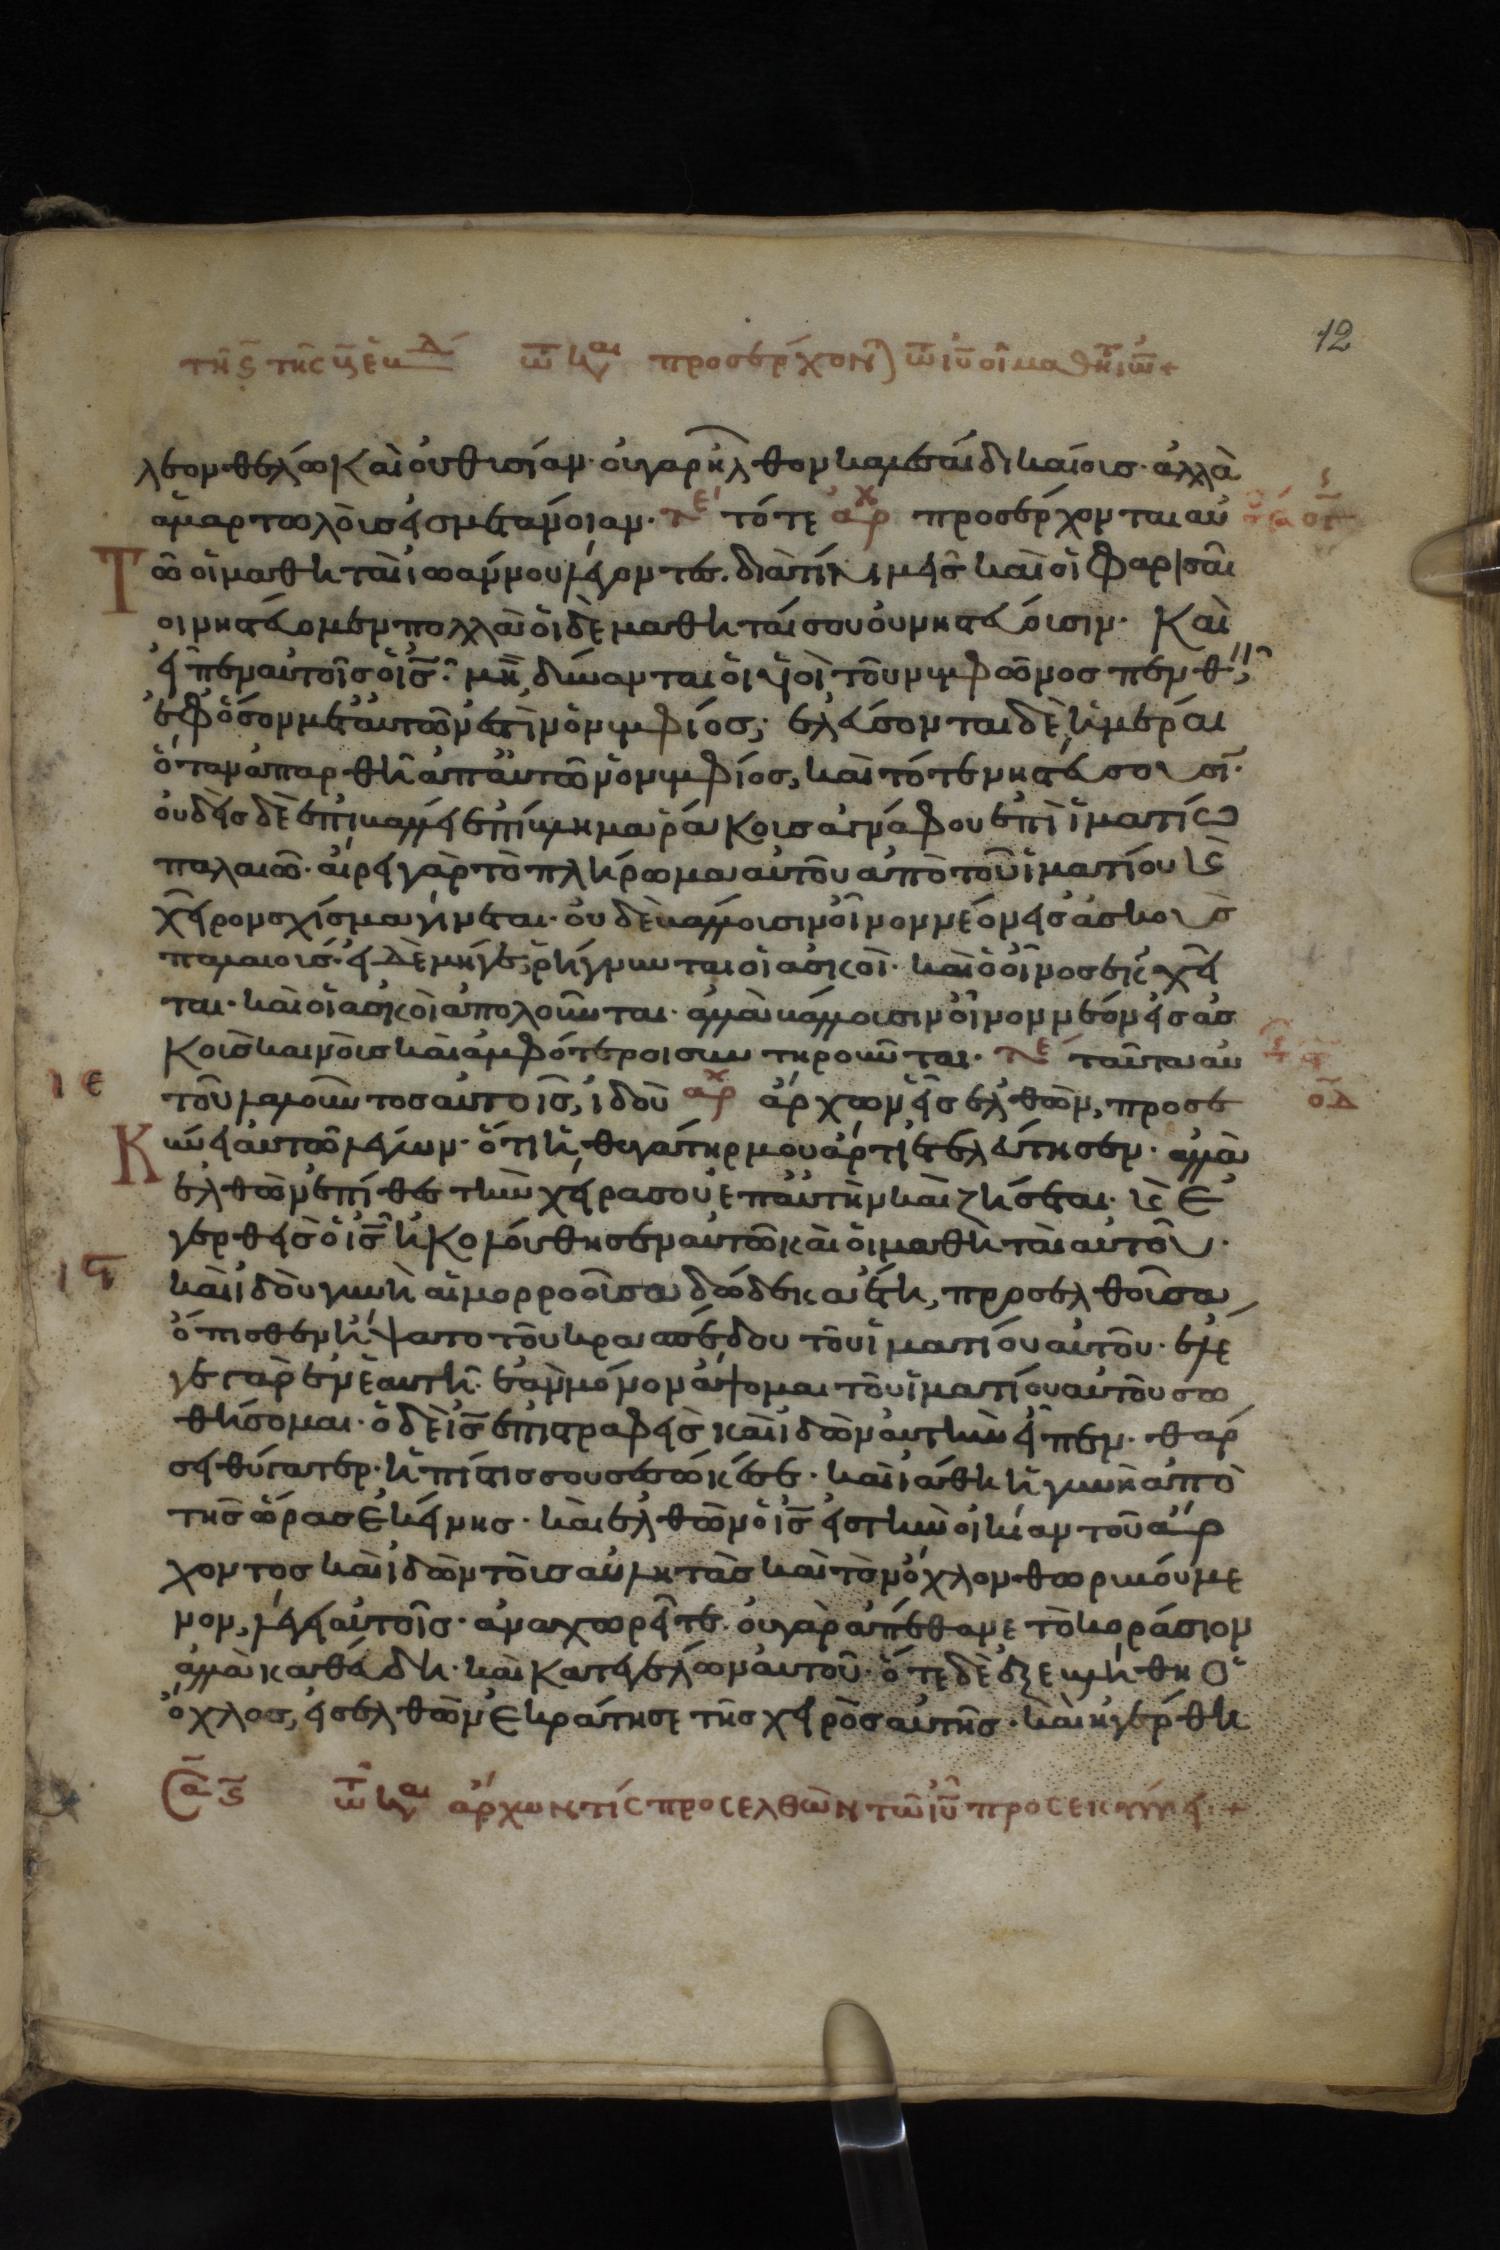 12
λεον θέλω καὶ οὐ θυσίαν· οὐ γὰρ ἦλθον καλέσαι δικαίοις· ἀλλὰ
ἁμαρτωλοὺς εἰς μετάνοιαν· τότε προσέρχονται αὐ
τῶ οἱ μαθηταὶ ἰωάννου λέγοντες· διατί ἡμεῖς καὶ οἱ φαρισαῖ
οι νηστεύομεν πολλὰ οἱ δὲ μαθηταί σου οὐ νηστεύουσιν· Καὶ
εἶπεν αὐτοῖς ὁ ἰς· μὴ δύνανται οἱ υἱοὶ τοῦ νυμφῶνος πενθεῖν
ἐφ ὅσον μετ αὐτῶν ἐστὶν ὁ νυμφίος; ἐλεύσονται δὲ ἡμέραι
ὅταν ἀπαρθῆ ἀπ αὐτῶν ὁ νυμφίος, καὶ τότε νηστεύσουσι·
οὐδεὶς δὲ ἐπιβάλλει ἐπίβλημα ῥάκους ἀγνάφου ἐπὶ ἱματίω
παλαιῶ· αἴρει γὰρ τὸ πλήρωμα αὐτοῦ ἀπὸ τοῦ ἱματίου καὶ
χεῖρον σχίσμα γίνεται· οὐδὲ βάλλουσιν οἶνον νέον εἰς ἀσκοὺς
παλαιούς· εἰ δὲ μήγε, ῥήγνυνται οἱ ἀσκοὶ· καὶ ὁ οἶνος ἐκχεῖ
ται· καὶ οἱ ἀσκοὶ ἀπολοῦνται· ἀλλὰ βάλλουσιν οἶνον νέον εἰς ἀσ
κοὺς καινοὺς καὶ ἀμφότεροι συντηροῦνται· ταῦτα αὐ
ιε
τοῦ λαλοῦντος αὐτοῖς, ἰδοὺ ἄρχων εἰσελθὼν, προσε
κύνει αὐτῶ λέγων· ὅτι ἡ θυγάτηρ μου ἄρτι ἐτελεύτησεν· ἀλλὰ
ἐλθὼν ἐπίθες τὴν χεῖρα σου ἐπ αὐτὴν καὶ ζήσεται· καὶ ἐ
γερθεὶς ὁ ἰς ἠκολούθησεν αὐτῶ καὶ οἱ μαθηταὶ αὐτοῦ·
ιϛ
καὶ ἰδοὺ γυνὴ αἱμορροοῦσα δώδεκα ἔτη, προσελθοῦσα
ὄπισθεν ἥψατο τοῦ κρασπέδου τοῦ ἱματίου αὐτοῦ· ἔλε
γε γὰρ ἐν ἑαυτῆ· ἐὰν μόνον ἅψομαι τοῦ ἱματίου αὐτοῦ σω
θήσομαι· ὁ δὲ ἰς ἐπιστραφεὶς καὶ ἰδὼν αὐτὴν εἶπεν· θάρ
σει θύγατερ· ἡ πίστις σου σέσωκέ σε· καὶ ἐσώθη ἡ γυνὴ ἀπὸ
τῆς ὥρας ἐκείνης· καὶ ἐλθὼν ὁ ἰς εἰς τὴν οἰκίαν τοῦ ἄρ
χοντος καὶ ἰδὼν τοὺς αὐλητὰς καὶ τὸν ὄχλον θορυβούμε
νον, λέγει αὐτοῖς· ἀναχωρεῖτε· οὐ γὰρ ἀπέθανε τὸ κοράσιον
ἀλλὰ καθεύδει· καὶ κατεγέλων αὐτοῦ· ὅτε δὲ ἐξεβλήθη ὁ
ὄχλος, εἰσελθὼν ἐκράτησε τῆς χειρὸς αὐτῆς· καὶ ἠγέρθη
ἄρχων τίς προσελθὼν τῶ ἰυ προσεκύνει +